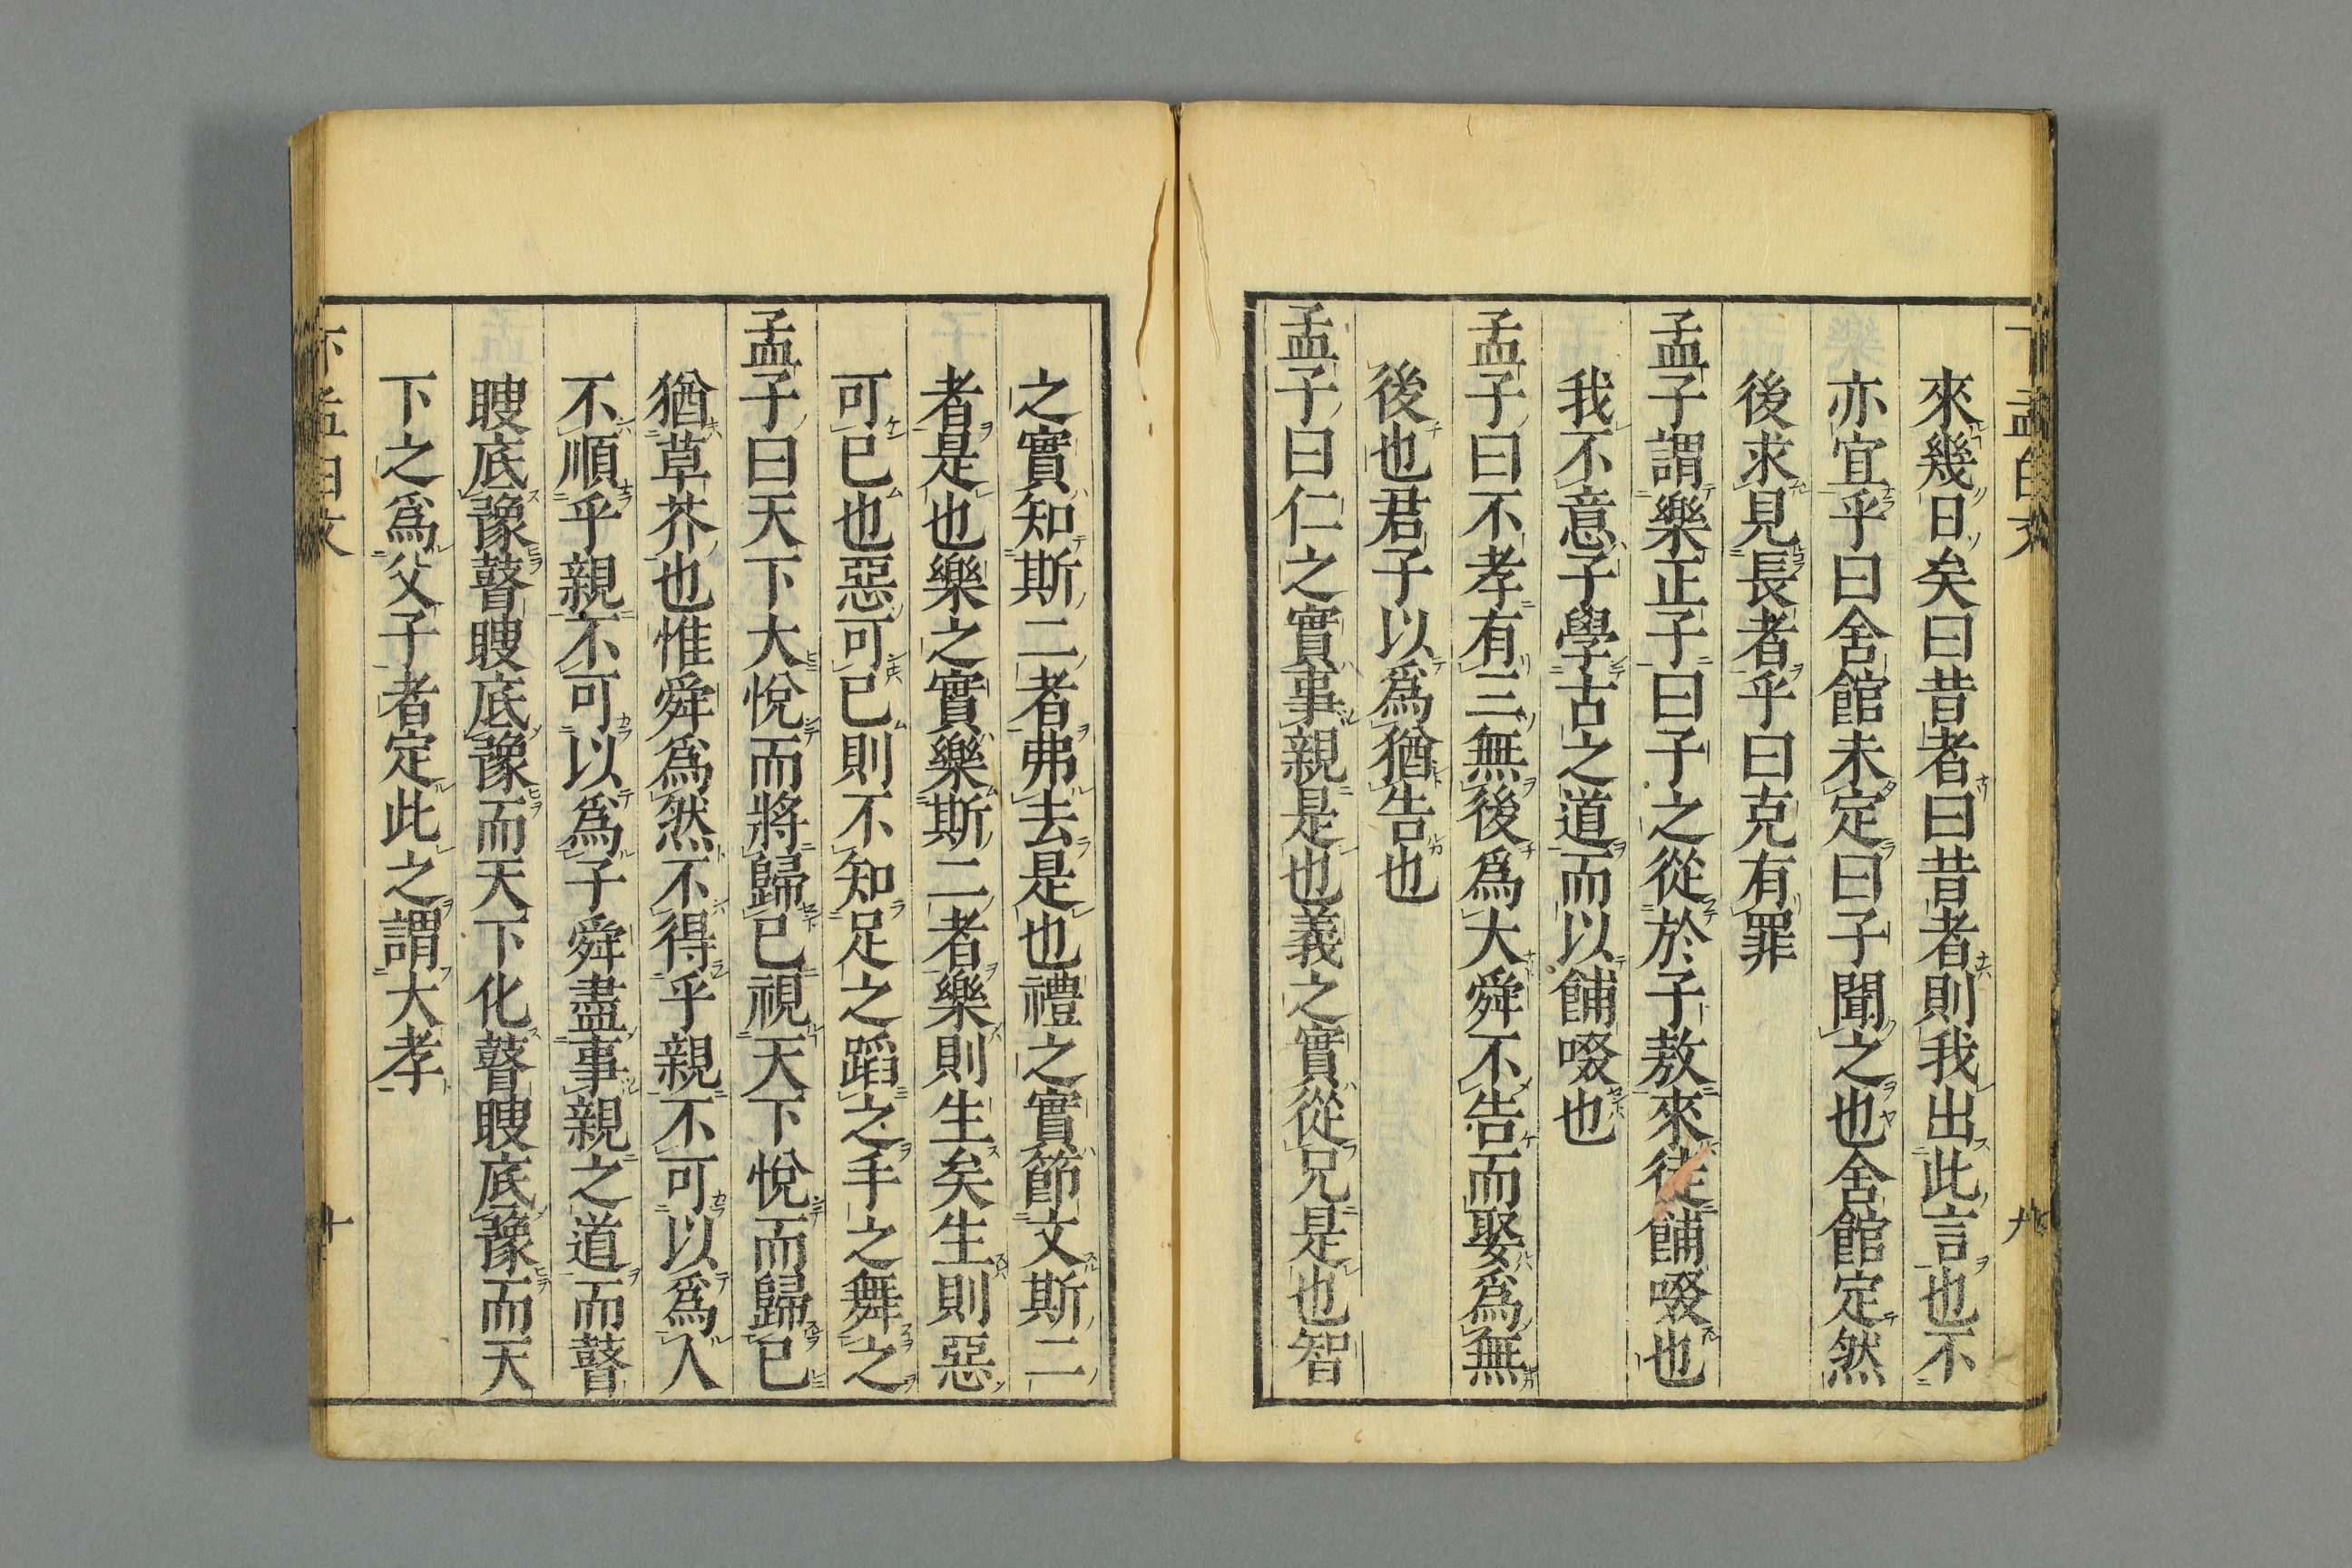 來幾日矣曰昔者曰昔者則我出此言也不
亦宜乎曰舍館未定曰子聞之也舍館定然
後求見長者乎曰克有罪
孟子謂樂正子曰子之從於子敖來徒餔啜也
我不意子學古之道而以餔啜也
孟子曰不孝有三無後爲大舜不告而娶爲無
後也君子以爲猶告也
孟子曰仁之實事親是也義之實從兄是也智
之實知斯二者弗去是也禮之實節文斯二
者是也樂之實樂斯二者樂則生矣生則惡
可已也惡可已則不知足之蹈之手之舞之
孟子曰天下大悅而將歸已視天下悅而歸已
猶草芥也惟舜爲然不得乎親不可以爲人
不順乎親不可以爲子舜盡事親之道而瞽
瞍底豫瞽瞍底豫而天下化瞽瞍底豫而天
下之爲父子者定此之謂大孝
十